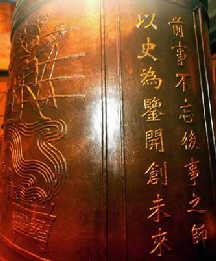 前事不忘後事之師
以史為鑒開創未來